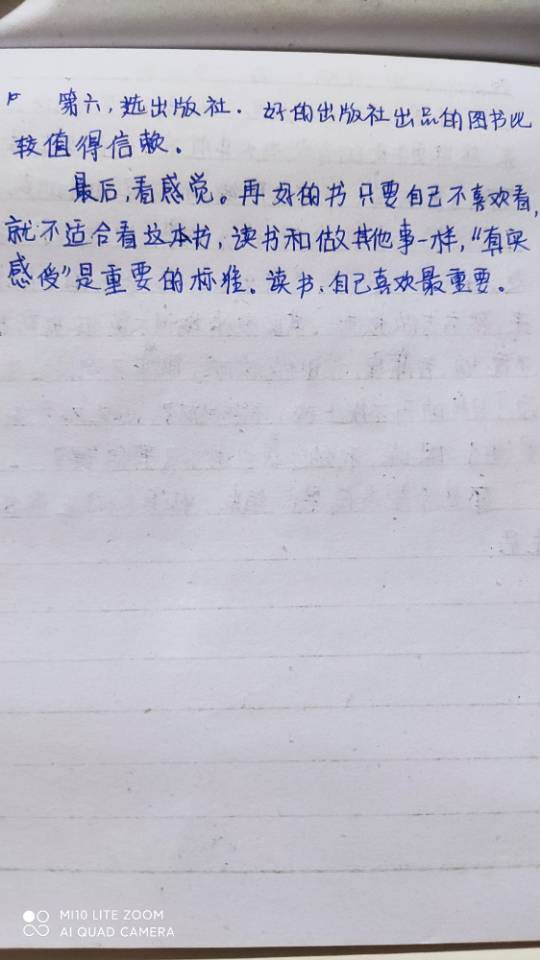 第六,选出版社. 好的出版社出品的图书比
较值得信赖。
最后,看感觉。再好的书只要自己不喜欢看,
就不适合看这本书,读书和做其他事一样,“真实
感受”是重要的标准。读书,自己喜欢最重要。
MI 10 LITE ZOOM
AI QUAD CAMERA